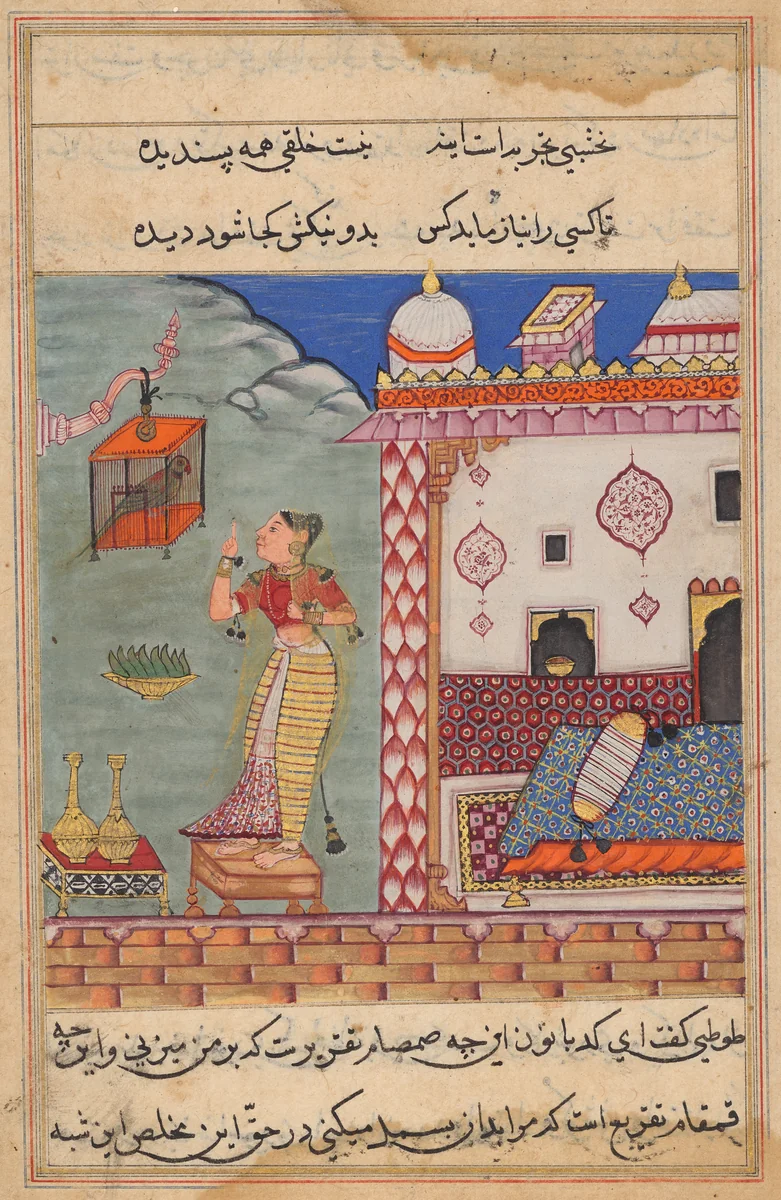 نخشبي نيست خلقي همه پسنديده
تا کسي را نيازمايد کس بد و نيکش کجا شود ديده
طوطي گفت اي کدبانون اين چه صمصام تقريرست که بر من ميزني و اين چه
قمقام تقريع است که مرا بدان بسمل ميکني در حقّ اين مخلص اين شبه